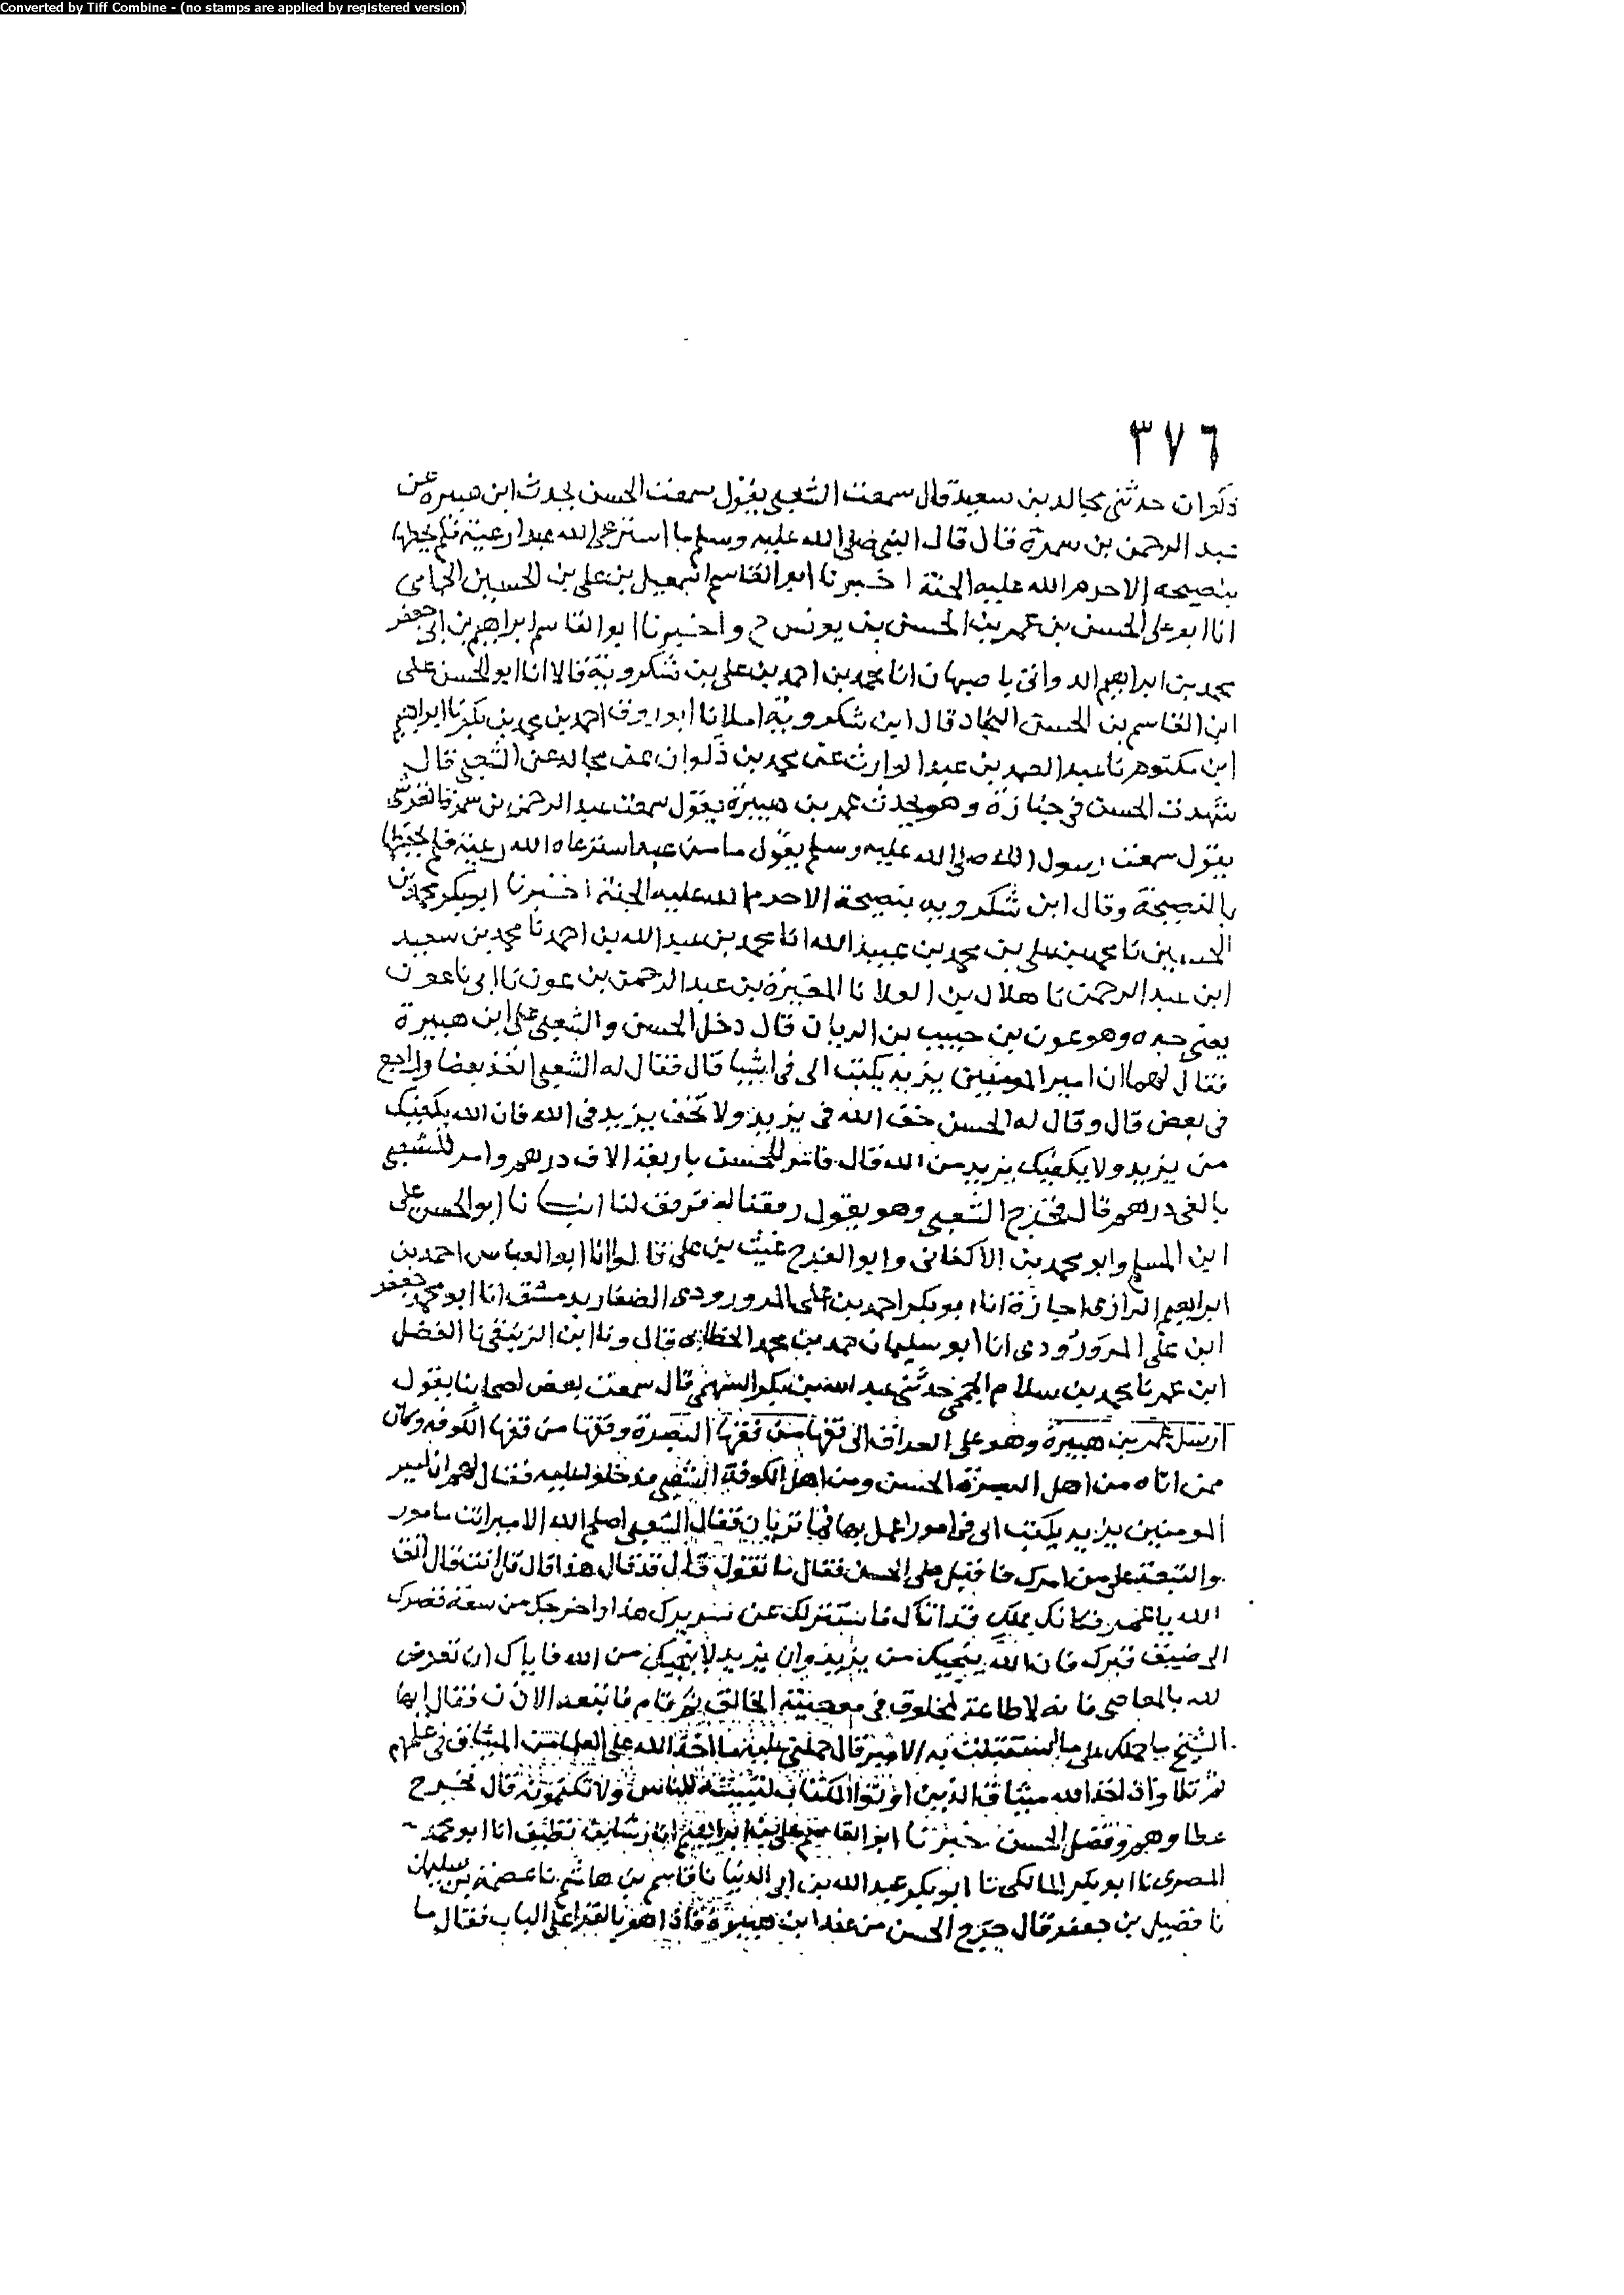 Converted by Tiff Combine - (no stamps are applied by registered version)
٣٧٦
ذكوان حدثني مجالد بن سعيد قال سمعت الشعبي يقول سمعت الحسن يحدث ابن هبيرة عن
عبد الرحمن بن سمرة قال قال النبي صلى الله عليه وسلم ما استرعى الله عبدا رعية فلم يحطها
بنصيحه الا حرم الله عليه الجنة اخبرنا ابو القاسم اسمعيل بن علي بن الحسين الحمامي
انا ابو علي الحسن بن عمر بن الحسن بن يونس ح واخبرنا ابو القاسم ابراهيم بن ابي جعفر
محمد بن ابراهيم الدواتي باصبهان انا محمد بن احمد بن علي بن شكرويه قالا انا ابو الحسن علي
ابن القاسم بن الحسن النجاد قال ابن شكرويه املا نا ابو روق احمد بن محمد بن بكر نا ابراهيم
ابن مكتوم نا عبد الصمد بن عبد الوارث عن محمد بن ذكوان عن مجالد عن الشعبي قال
شهدت الحسن في جنازة وهو يحدث عمر بن هبيرة يقول سمعت عبد الرحمن بن سمرة القرشي
يقول سمعت رسول الله صلى الله عليه وسلم يقول ما من عبد استرعاه الله رعية فلم يحطها
بالنصيحة وقال ابن شكرويه بنصيحة الا حرم الله عليه الجنة اخبرنا ابو بكر محمد بن
الحسين نا محمد بن علي بن محمد بن عبيد الله انا محمد بن عبد الله بن احمد نا محمد بن سعيد
ابن عبد الرحمن نا هلال بن العلا نا المغيرة بن عبد الرحمن بن عون نا ابي نا عون
يعني جده وهو عون بن حبيب بن الريان قال دخل الحسن والشعبي على ابن هبيرة
فقال لهما ان امير المومنين يزيد يكتب الي في اشيا قال فقال له الشعبي انفذ بعضا وراجع
في بعض قال وقال له الحسن خف الله في يزيد ولا تخف يزيد في الله فان الله يكفيك
من يزيد ولا يكفيك يزيد من الله قال فامر للحسن باربعة الاف درهم وامر للشعبي
بالفي درهم قال فخرج الشعبي وهو يقول رققنا له فرقق لنا انبانا ابو الحسن علي
ابن المسلم وابو محمد بن الاكفاني وابو الفرج غيث بن علي قالوا انا ابو العباس احمد بن
ابراهيم الرازي اجازة انا ابو بكر احمد بن علي المرورودي الصفار بدمشق انا ابو محمد جعفر
ابن علي المرورودي انا ابو سليمان حمد بن محمد الخطابي قال ونا ابن الزيبقي نا الفضل
ابن عمر نا محمد بن سلام الجمحي حدثني عبد الله بن بكر السهمي قال سمعت بعض اصحابنا يقول
ارسل عمر بن هبيرة وهو على العراق الى فقها من فقها البصرة وفقها من فقها الكوفه وكان
ممن اتاه من اهل البصرة الحسن ومن اهل الكوفة الشعبي فدخلوا عليه فقال لهم ان امير
المومنين يزيد يكتب الي في امور اعمل بها فما تريان فقال الشعبي اصلح الله الامير انت مامور
والتبعة على من امرك فاقبل على الحسن فقال ما تقول قال قد قال هذا قال قل انت قال اتق
الله يا عمر فكانك بملك قد اتاك فاستنزلك عن سريرك هذا واخرجك من سعة قصرك
الى ضيق قبرك فان الله ينجيك من يزيد وان يزيد لا ينجيك من الله فاياك ان تعرض
لله بالمعاصي فانه لا طاعة لمخلوق في معصية الخالق ثم قام فاتبعه الاذن فقال ايها
الشيخ ما حملك على ما استقبلت به الامير قال حملني عليه ما اخذ الله على العلما من الميثاق في علمهم
ثم تلا واذ اخذ الله ميثاق الذين اوتوا الكتاب لتبيننه للناس ولا تكتمونه قال فخرج
عطاوهم وفضل الحسن اخبرنا ابو القاسم علي بن ابراهيم انا رشا بن نظيف انا ابو محمد
المصري نا ابو بكر المالكي نا ابو بكر عبد الله بن ابي الدنيا نا قاسم بن هاشم نا عصمة بن سليمان
نا فضيل بن جعفر قال خرج الحسن من عند ابن هبيرة فاذا هو بالقرا على الباب فقال ما